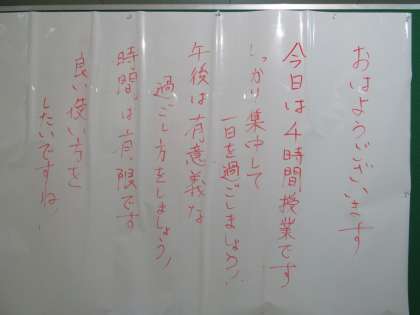 おはようございます
今日は4時間授業です
しっかり集中して
一日を過ごしましょう!
午後は有意義な
過ごし方をしましょう!
時間は有限です
良い使い方を
したいですね!